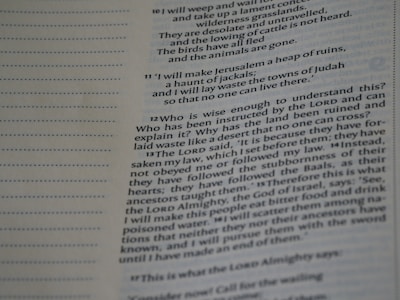 10 I will weep and wail for
and take up a lament conce
wilderness grasslands.
They are desolate and untravelled,
and the lowing of cattle is not heard.
The birds have all fled
and the animals are gone.
11 'I will make Jerusalem a heap of ruins,
a haunt of jackals;
and I will lay waste the towns of Judah
so that no one can live there.'
12 Who is wise enough to understand this?
Who has been instructed by the LORD and can
explain it? Why has the land been ruined and
laid waste like a desert that no one can cross?
13 The LORD said, 'It is because they have for-
saken my law, which I set before them; they have
not obeyed me or followed my law. 14 Instead,
they have followed the stubbornness of their
hearts; they have followed the Baals, as their
ancestors taught them.' 15 Therefore this is what
the LORD Almighty, the God of Israel, says: 'See,
I will make this people eat bitter food and drink
poisoned water. 16 I will scatter them among na-
tions that neither they nor their ancestors have
known, and I will pursue them with the sword
until I have made an end of them.'
17 This is what the LORD Almighty says:
'Consider now! Call for the wailing
come